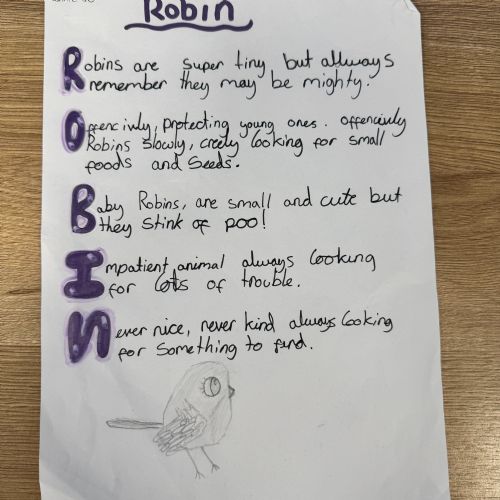 Robin
Robins are super tiny but allways
remember they may be mighty.
Offencivly, protecting young ones. offencivly
Robins slowly, creely looking for small
foods and seeds.
Baby Robins, are small and cute but
they stink of poo!
Impatient animal always looking
for lots of trouble.
Never nice, never kind always looking
for something to find.